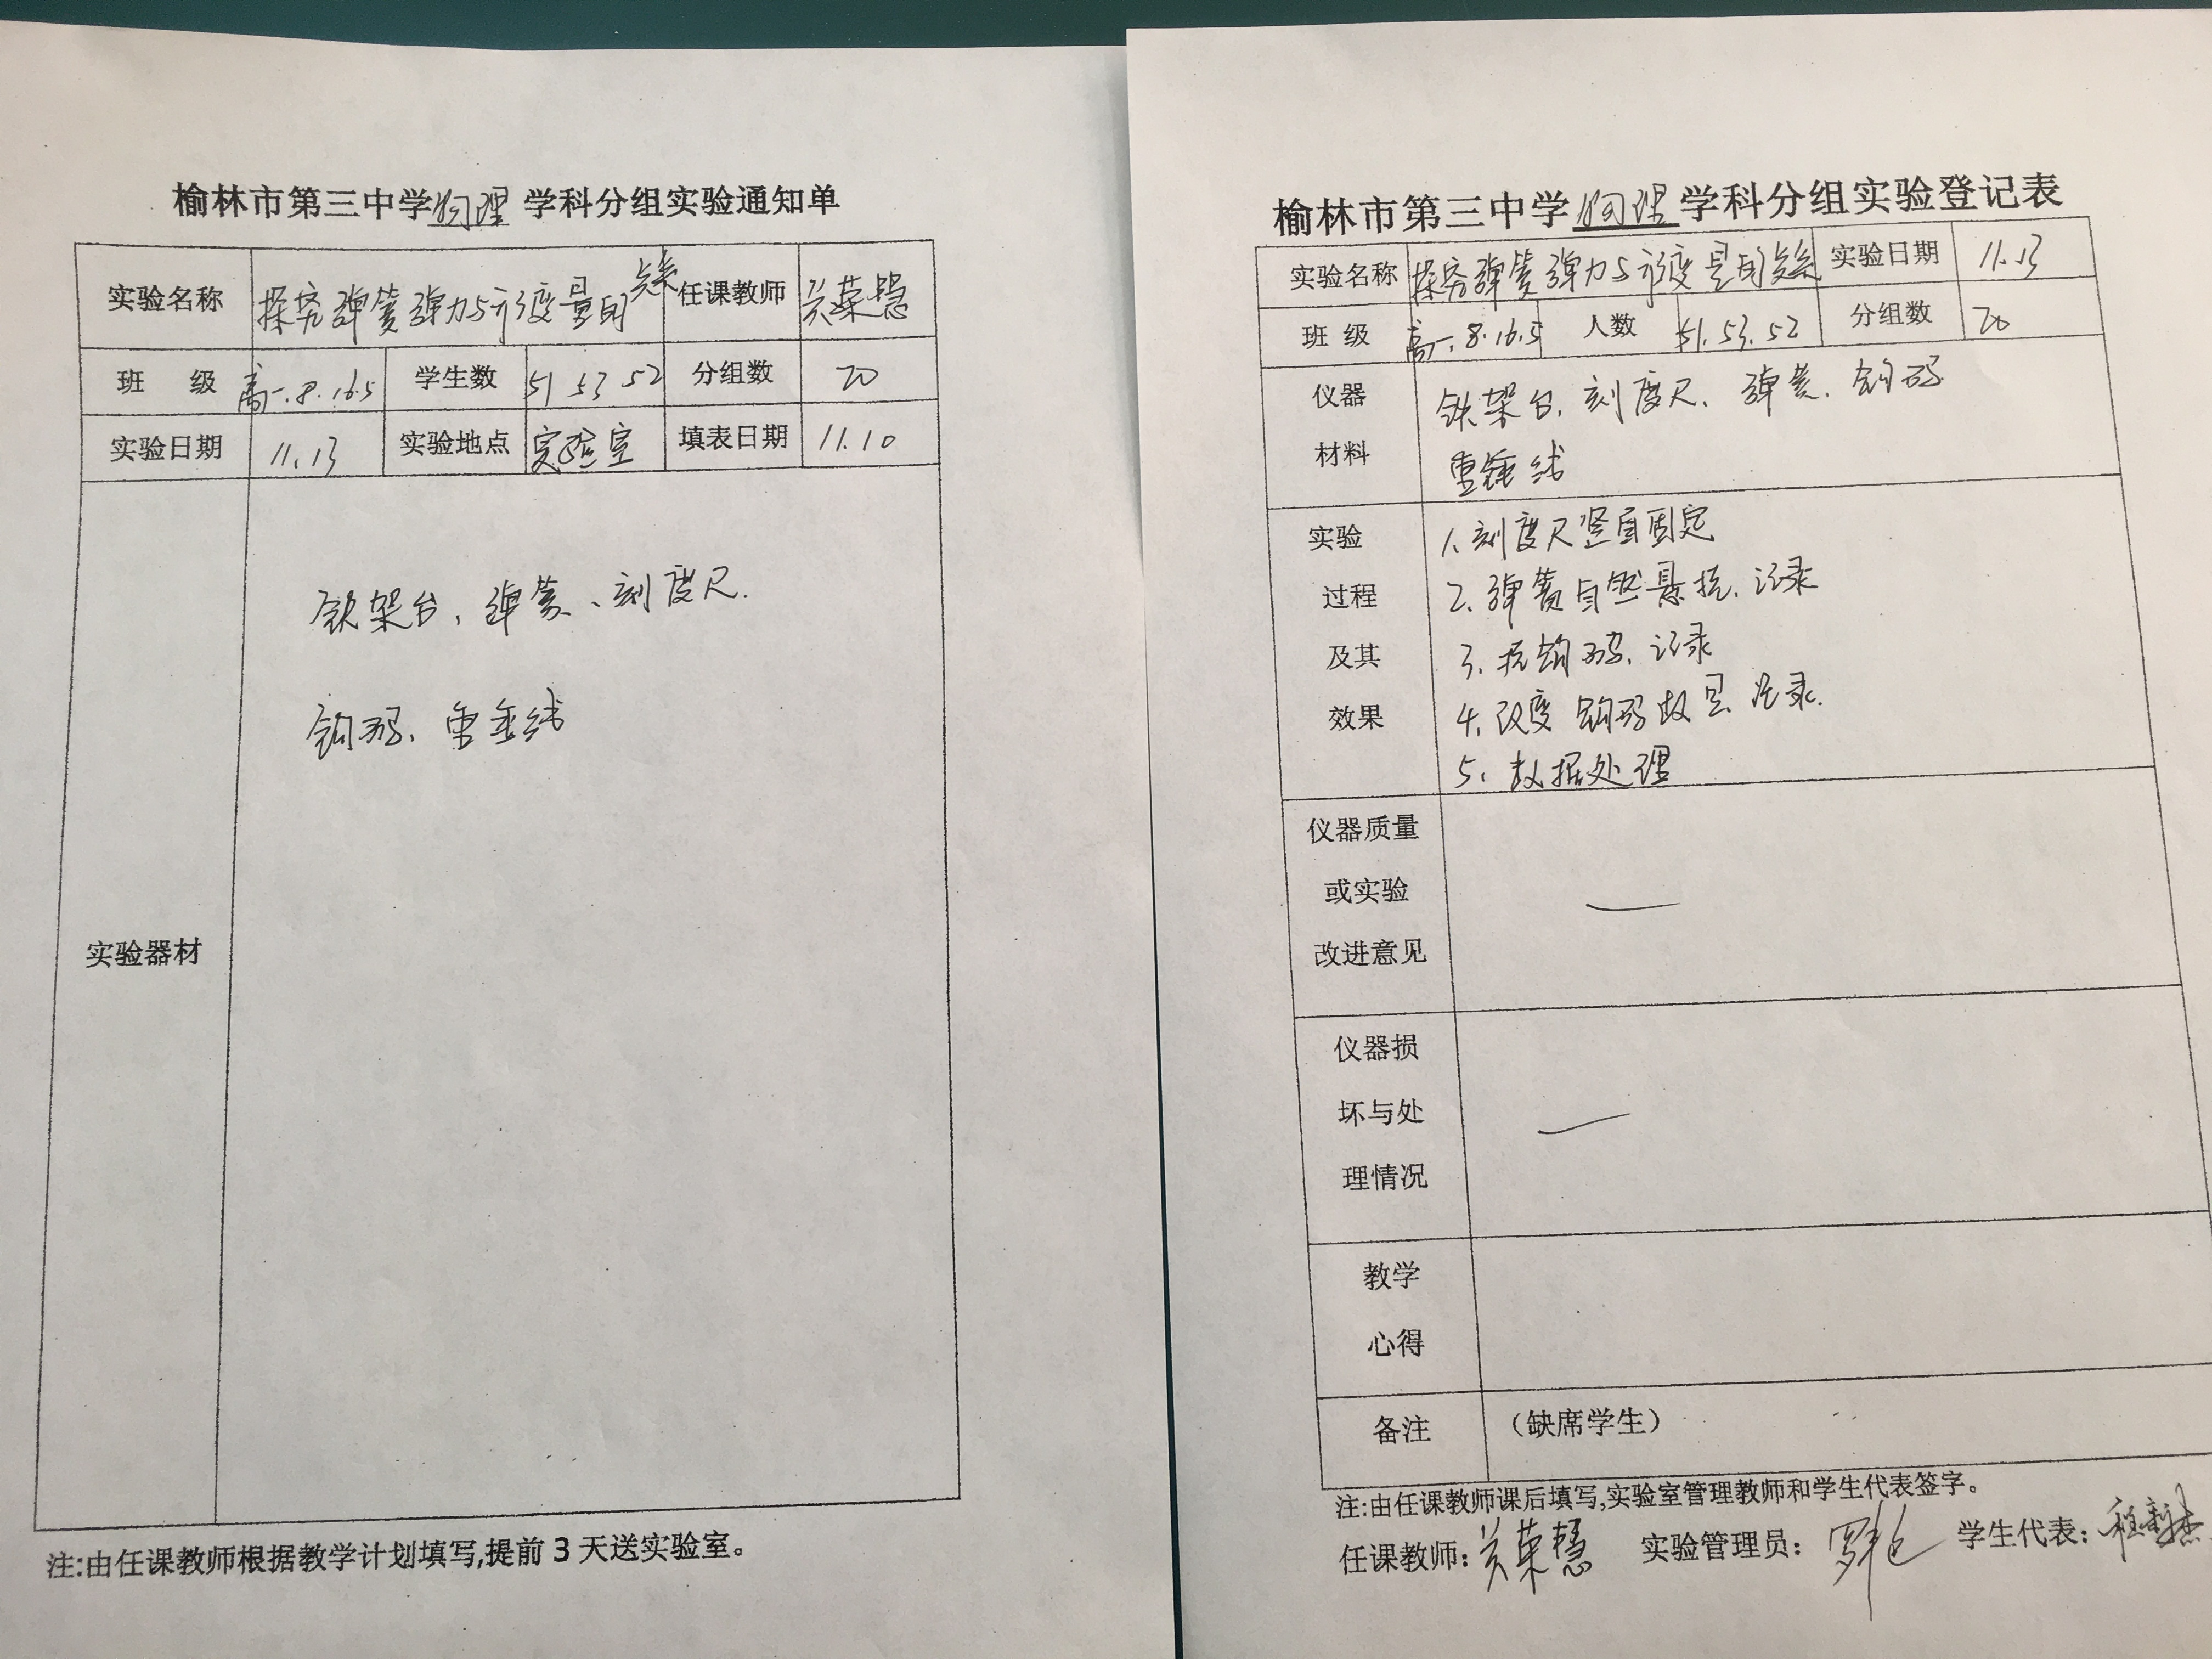 榆林市第三中学物理学科分组实验通知单
实验名称 探究弹簧弹力与形变量的关系 任课教师 关荣慧
班 级 高一.8.16.5 学生数 51 53 52 分组数 20
实验日期 11.13 实验地点 实验室 填表日期 11.10
铁架台、弹簧、刻度尺.
钩码、重垂线
实验器材
注:由任课教师根据教学计划填写,提前3天送实验室。
榆林市第三中学物理学科分组实验登记表
实验名称 探究弹簧弹力与形变量的关系 实验日期 11.13
班 级 高一.8.16.5 人数 51.53.52 分组数 20
仪器 铁架台、刻度尺、弹簧、钩码
材料 重锤线
实验 1、刻度尺竖直固定
过程 2、弹簧自然悬挂、记录
及其 3、挂钩码、记录
效果 4、改变钩码数量 记录.
5、数据处理
仪器质量
或实验 —
改进意见
仪器损
坏与处 —
理情况
教学
心得
备注 (缺席学生)
注:由任课教师课后填写,实验室管理教师和学生代表签字。
任课教师:关荣慧 实验管理员: 学生代表: